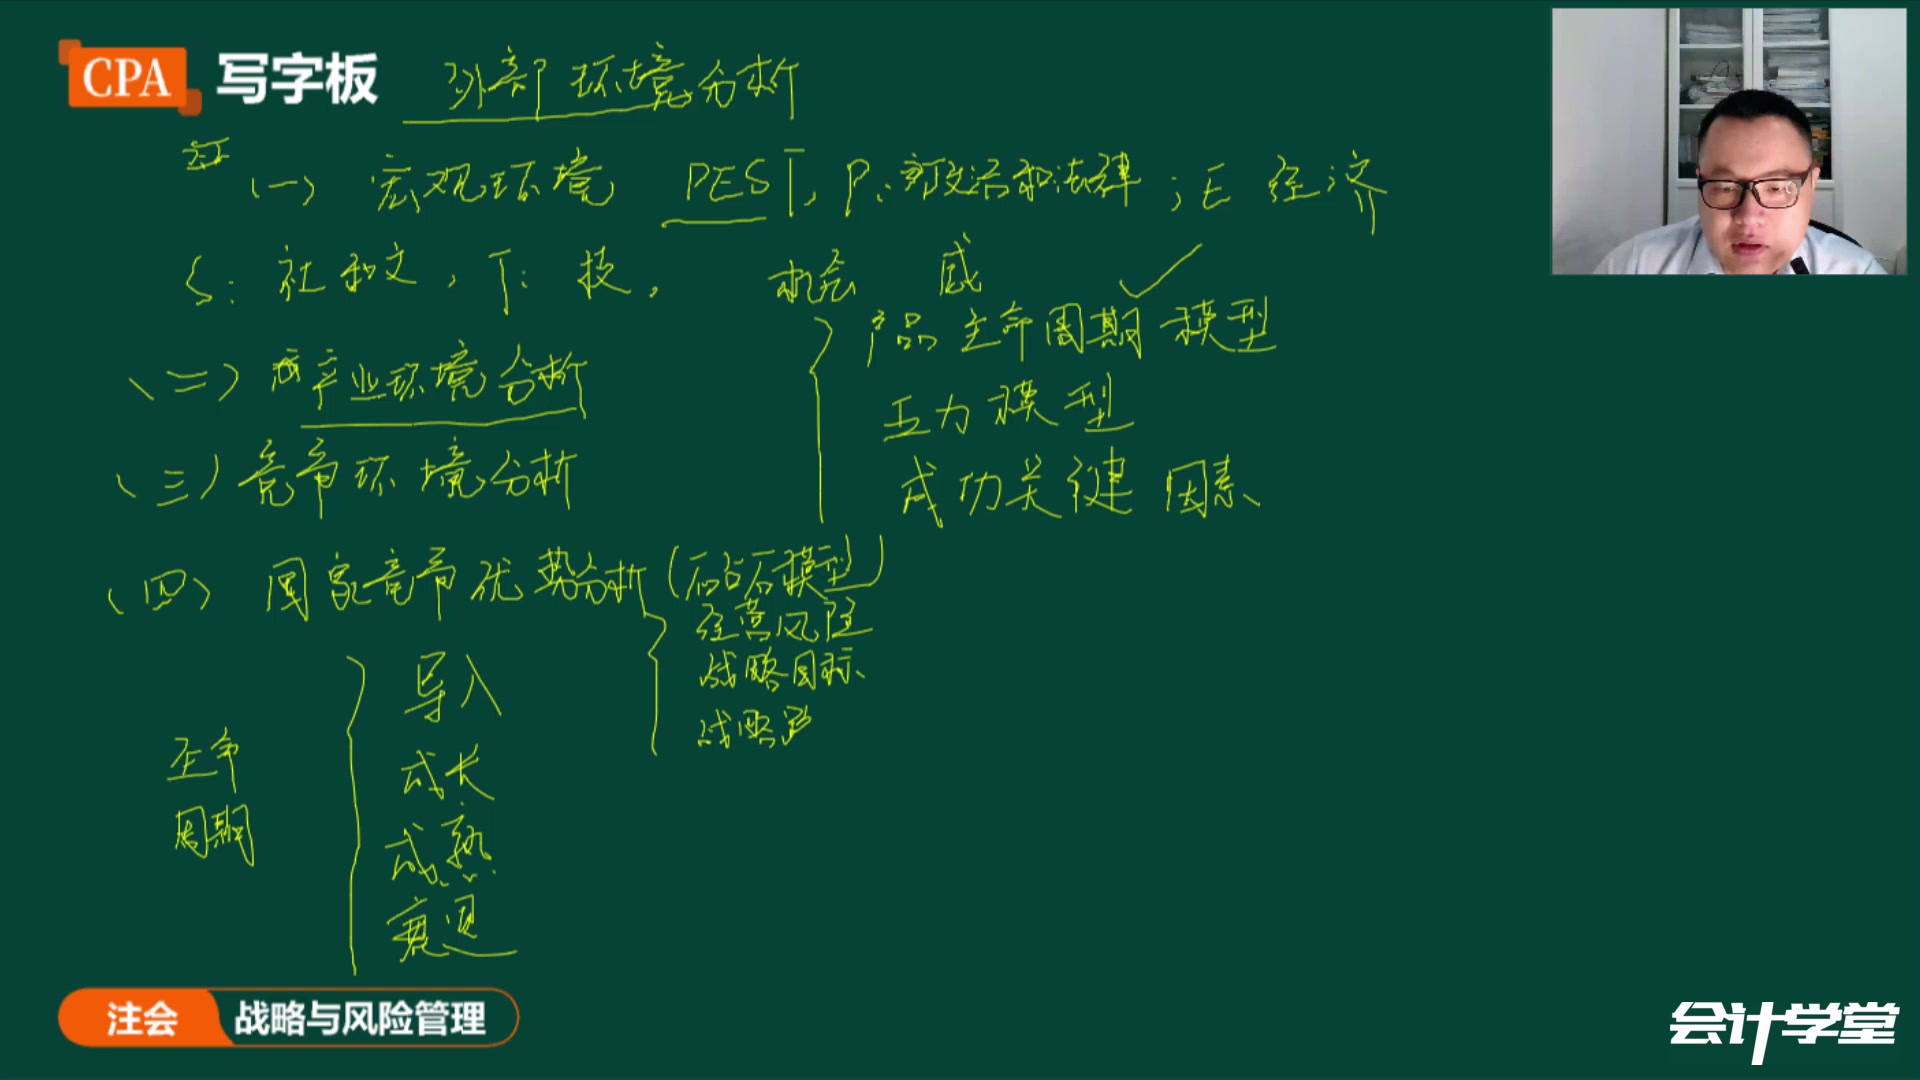 CPA 写字板 外部环境分析
(一) 宏观环境 PEST, P: 政治和法律; E 经济
S: 社和文, T: 技, 机会 威
产品生命周期模型
(二) 产业环境分析
五力模型
(三) 竞争环境分析
成功关键因素
(四) 国家竞争优势分析 (钻石模型)
经营风险
战略目标
战略路
导入
生命
周期
成长
成熟
衰退
注会 战略与风险管理
会计学堂